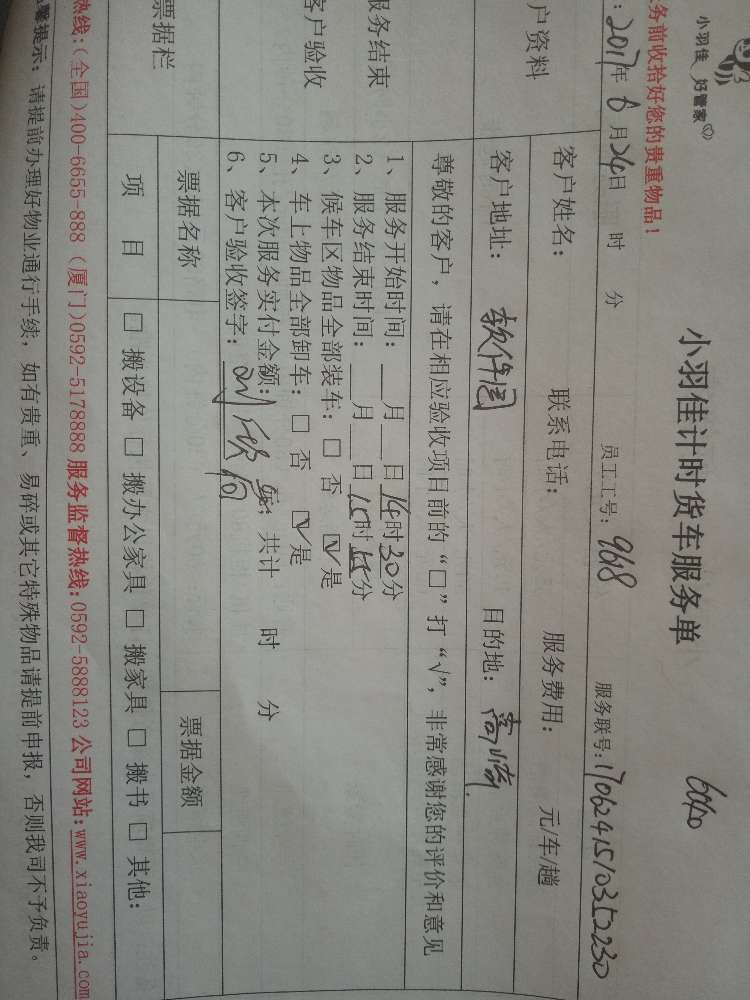 小羽佳 好管家
务前收拾好您的贵重物品！
小羽佳计时货车服务单
6040
：2017年6月24日 时 分 员工工号：968 服务联号：1706241510352230
户资料
客户姓名： 联系电话： 服务费用： 元/车/趟
客户地址：软件园 目的地：高崎
服务结束
客户验收
尊敬的客户，请在相应验收项目前的“□”打“√”，非常感谢您的评价和意见
1、服务开始时间：___月___日14时30分
2、服务结束时间：___月___日15时15分
3、候车区物品全部装车：□ 否 ☑ 是
4、车上物品全部卸车：□ 否 ☑ 是
5、本次服务实付金额： 元；共计 时 分
6、客户验收签字：
票据栏
票据名称 票据金额
项 目 □ 搬设备 □ 搬办公家具 □ 搬家具 □ 搬书 □ 其他：
热线：(全国)400-6655-888 (厦门)0592-5178888 服务监督热线：0592-5888123 公司网站：www.xiaoyujia.com
温馨提示：请提前办理好物业通行手续，如有贵重、易碎或其它特殊物品请提前申报，否则我司不予负责。